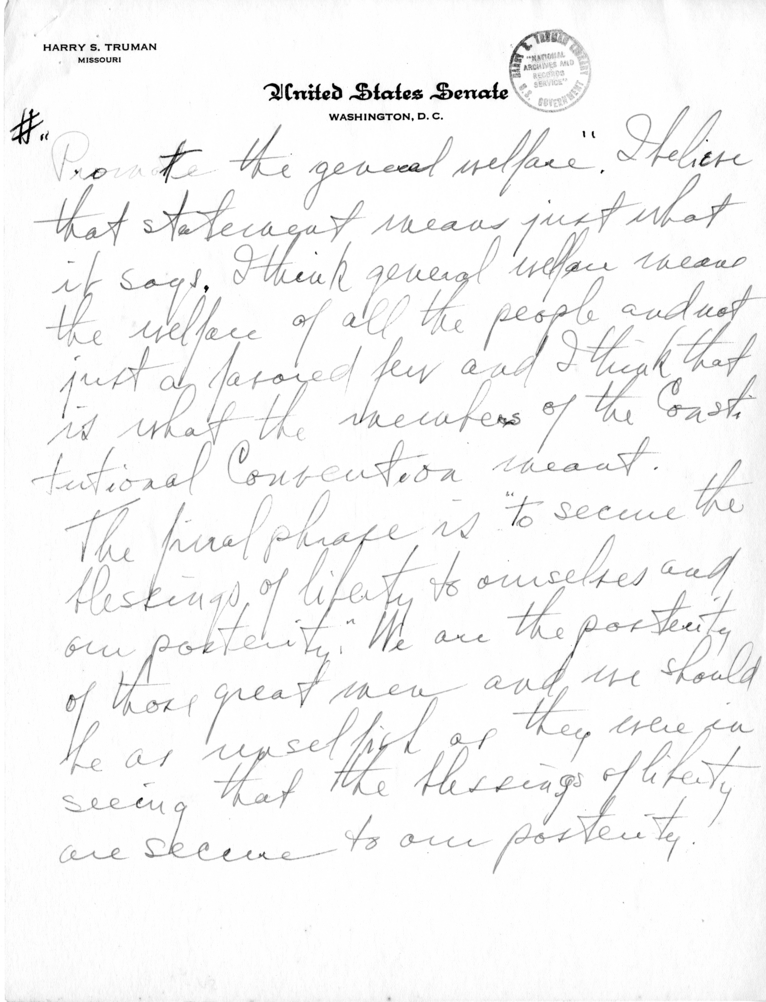 HARRY S. TRUMAN
MISSOURI
HARRY S. TRUMAN LIBRARY
"NATIONAL
ARCHIVES AND
RECORDS
SERVICE"
U.S. GOVERNMENT
United States Senate
WASHINGTON, D. C.
#"
Promote the general welfare". I believe
that statement means just what
it says. I think general welfare means
the welfare of all the people and not
just a favored few and I think that
is what the members of the Consti
tutional Convention meant.
The final phrase is "to secure the
blessings of liberty to ourselves and
our posterity." We are the posterity
of those great men and we should
be as unselfish as they were in
seeing that the blessings of liberty
are secure to our posterity.